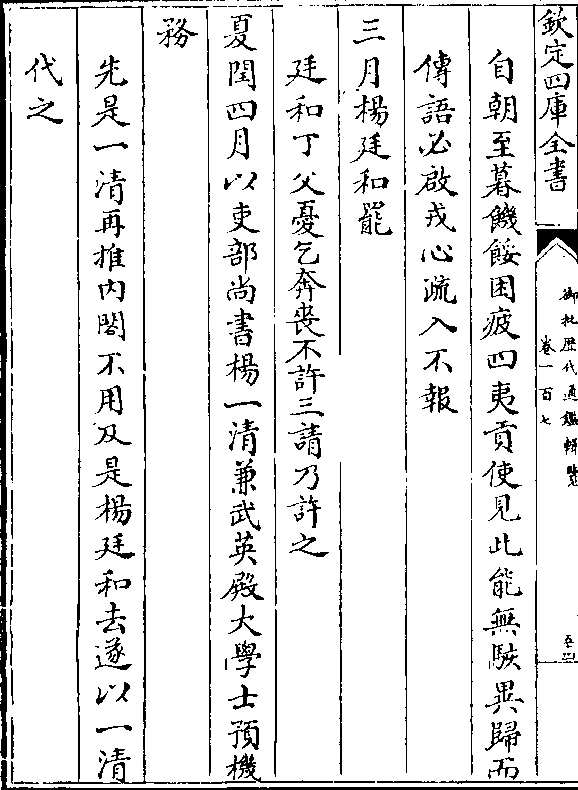 欽定四庫全書
御批歴代通鑑輯覽
卷一百七
自朝至暮饑餒困疲四夷貢使見此能無駭異歸而
傳語必啟戎心疏入不報
三月楊廷和罷
廷和丁父憂乞奔喪不許三請乃許之
夏閏四月以吏部尚書楊一清兼武英殿大學士預機
務
先是一清再推内閣不用及是楊廷和去遂以一清
代之